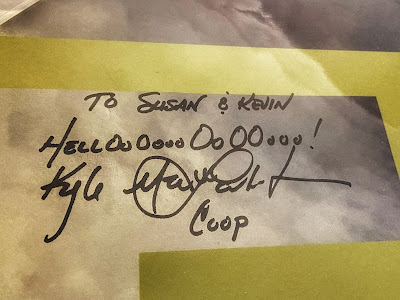 TO SUSAN & KEVIN
HELLOOOoooOoOOooo!
Kyle
Coop